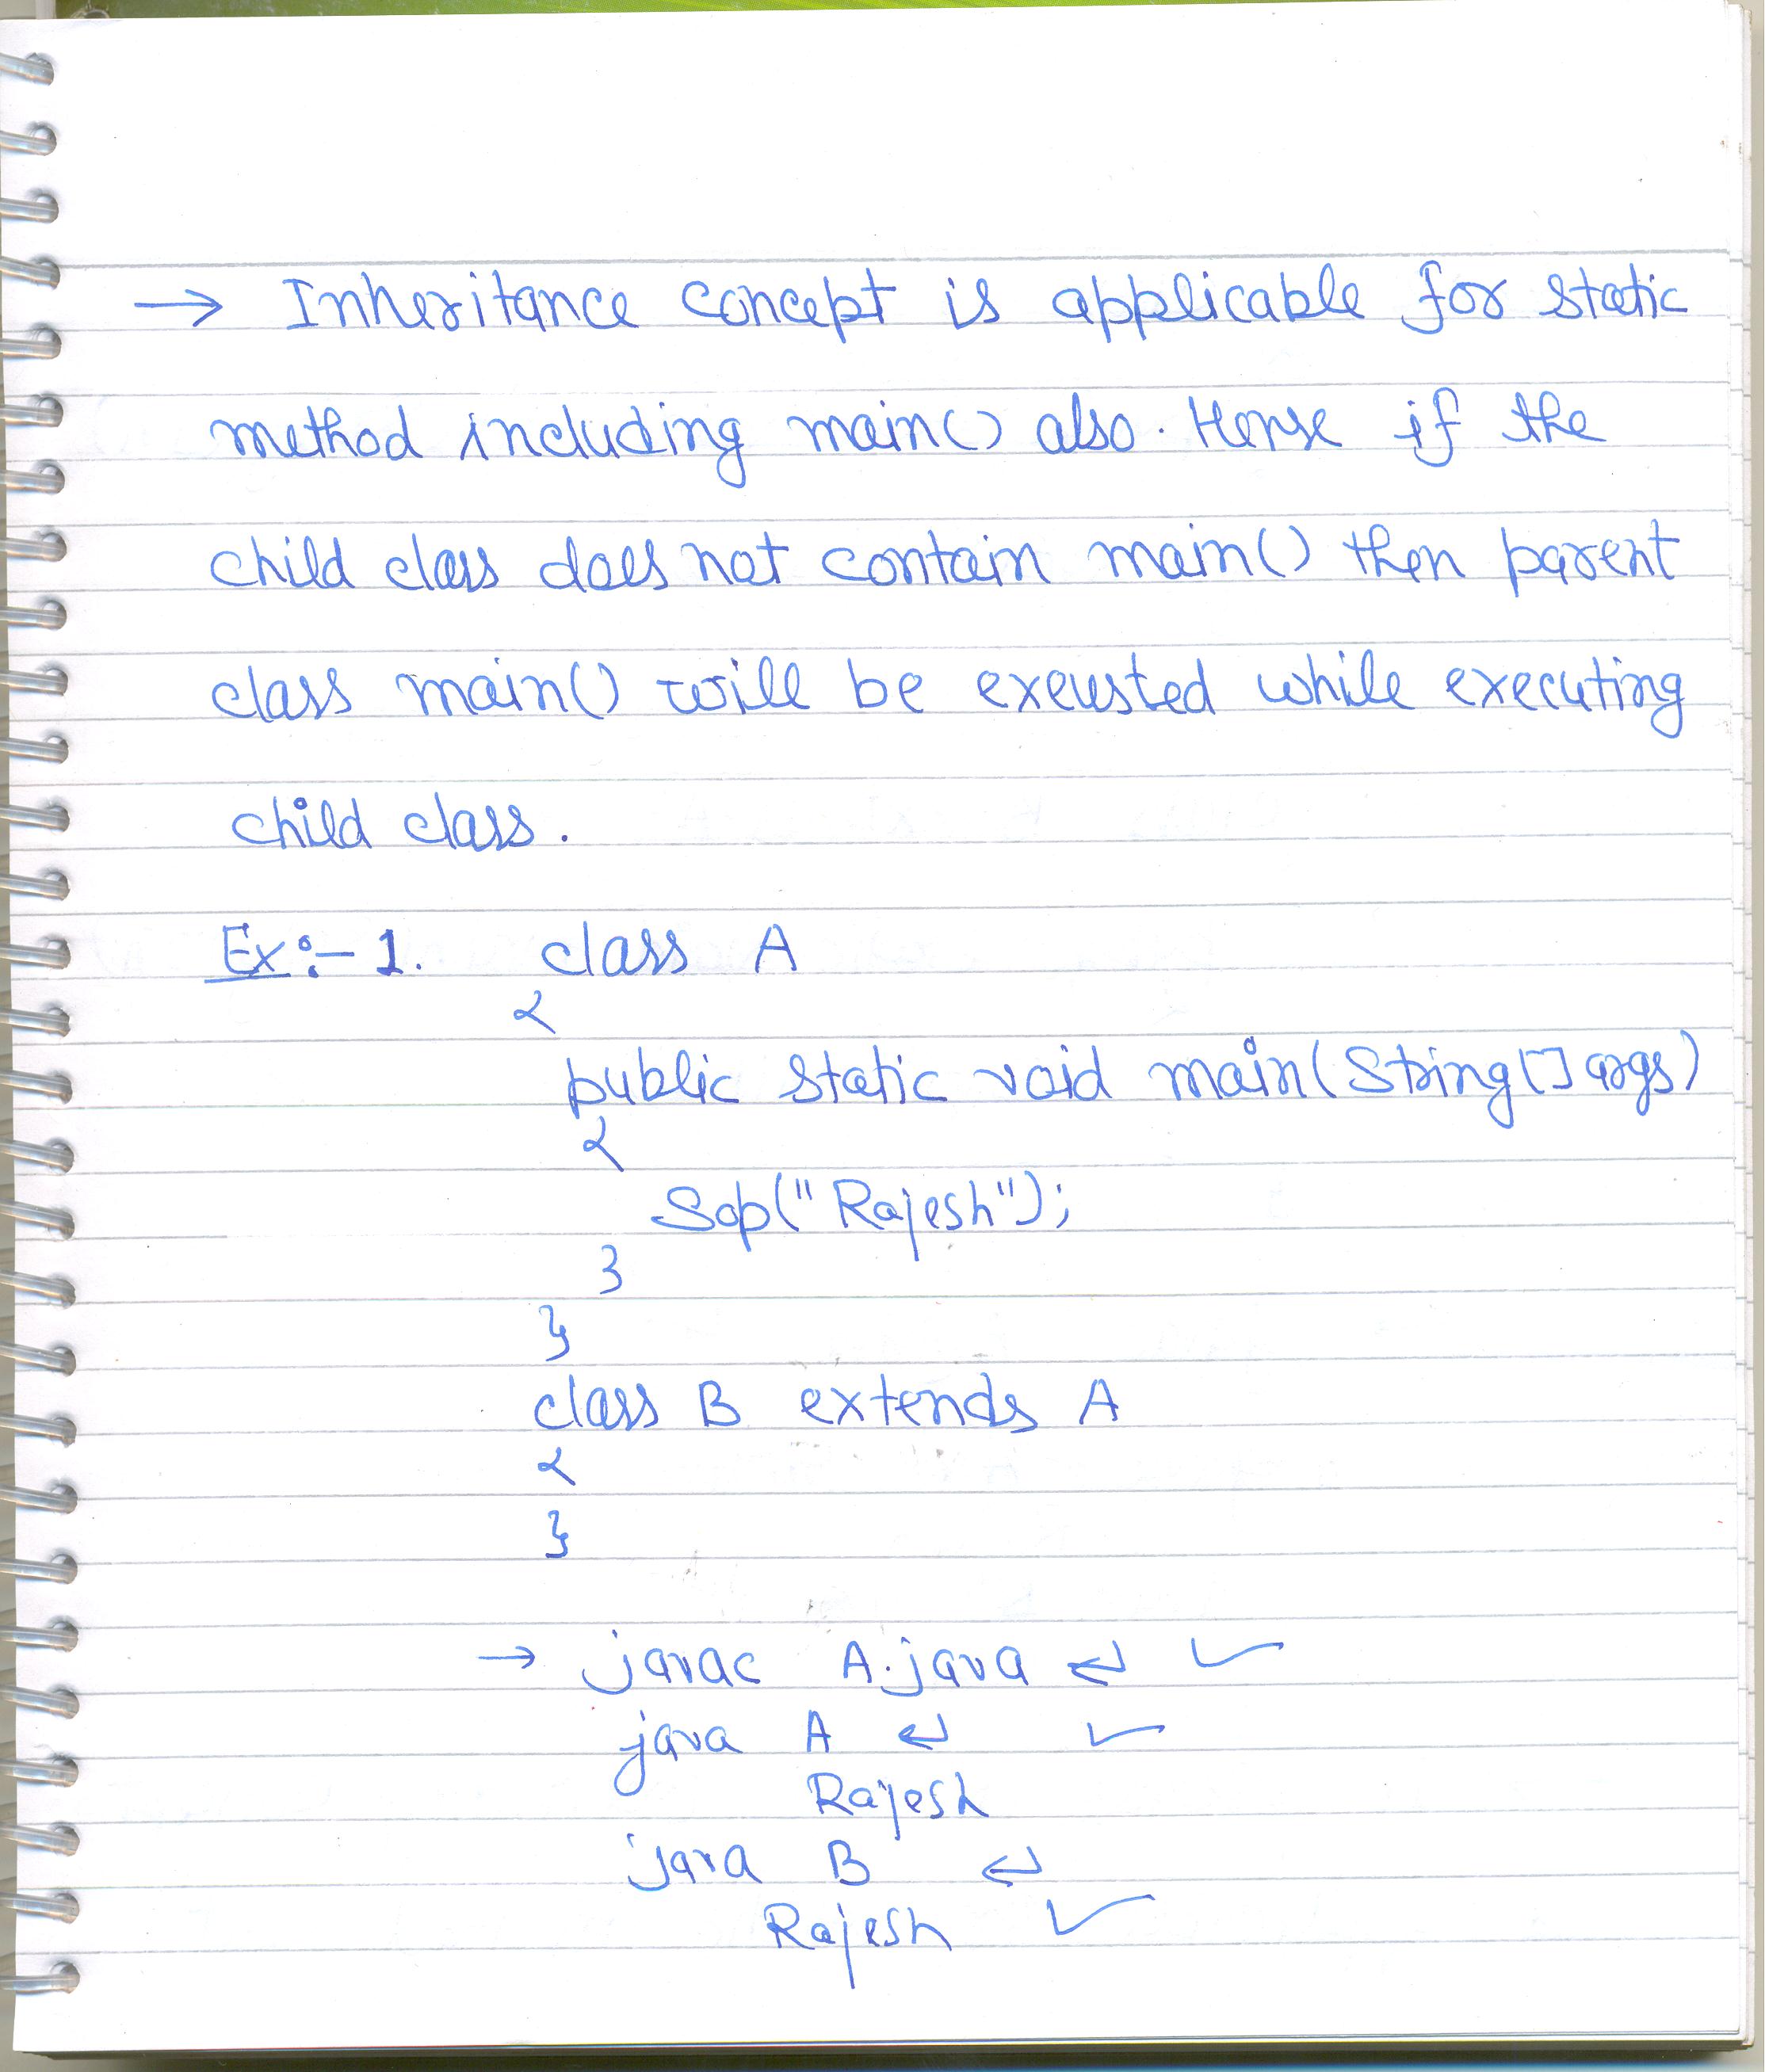 → Inheritance concept is applicable for static
method including main() also. Hense if the
child class does not contain main() then parent
class main() will be exeusted while executing
child class.
Ex:- 1. class A
{
public static void main(String[] args)
{
Sop("Rajesh");
}
}
class B extends A
{
}
→ javac A.java ↵ ✓
java A ↵ ✓
Rajesh
java B ↵
Rajesh ✓